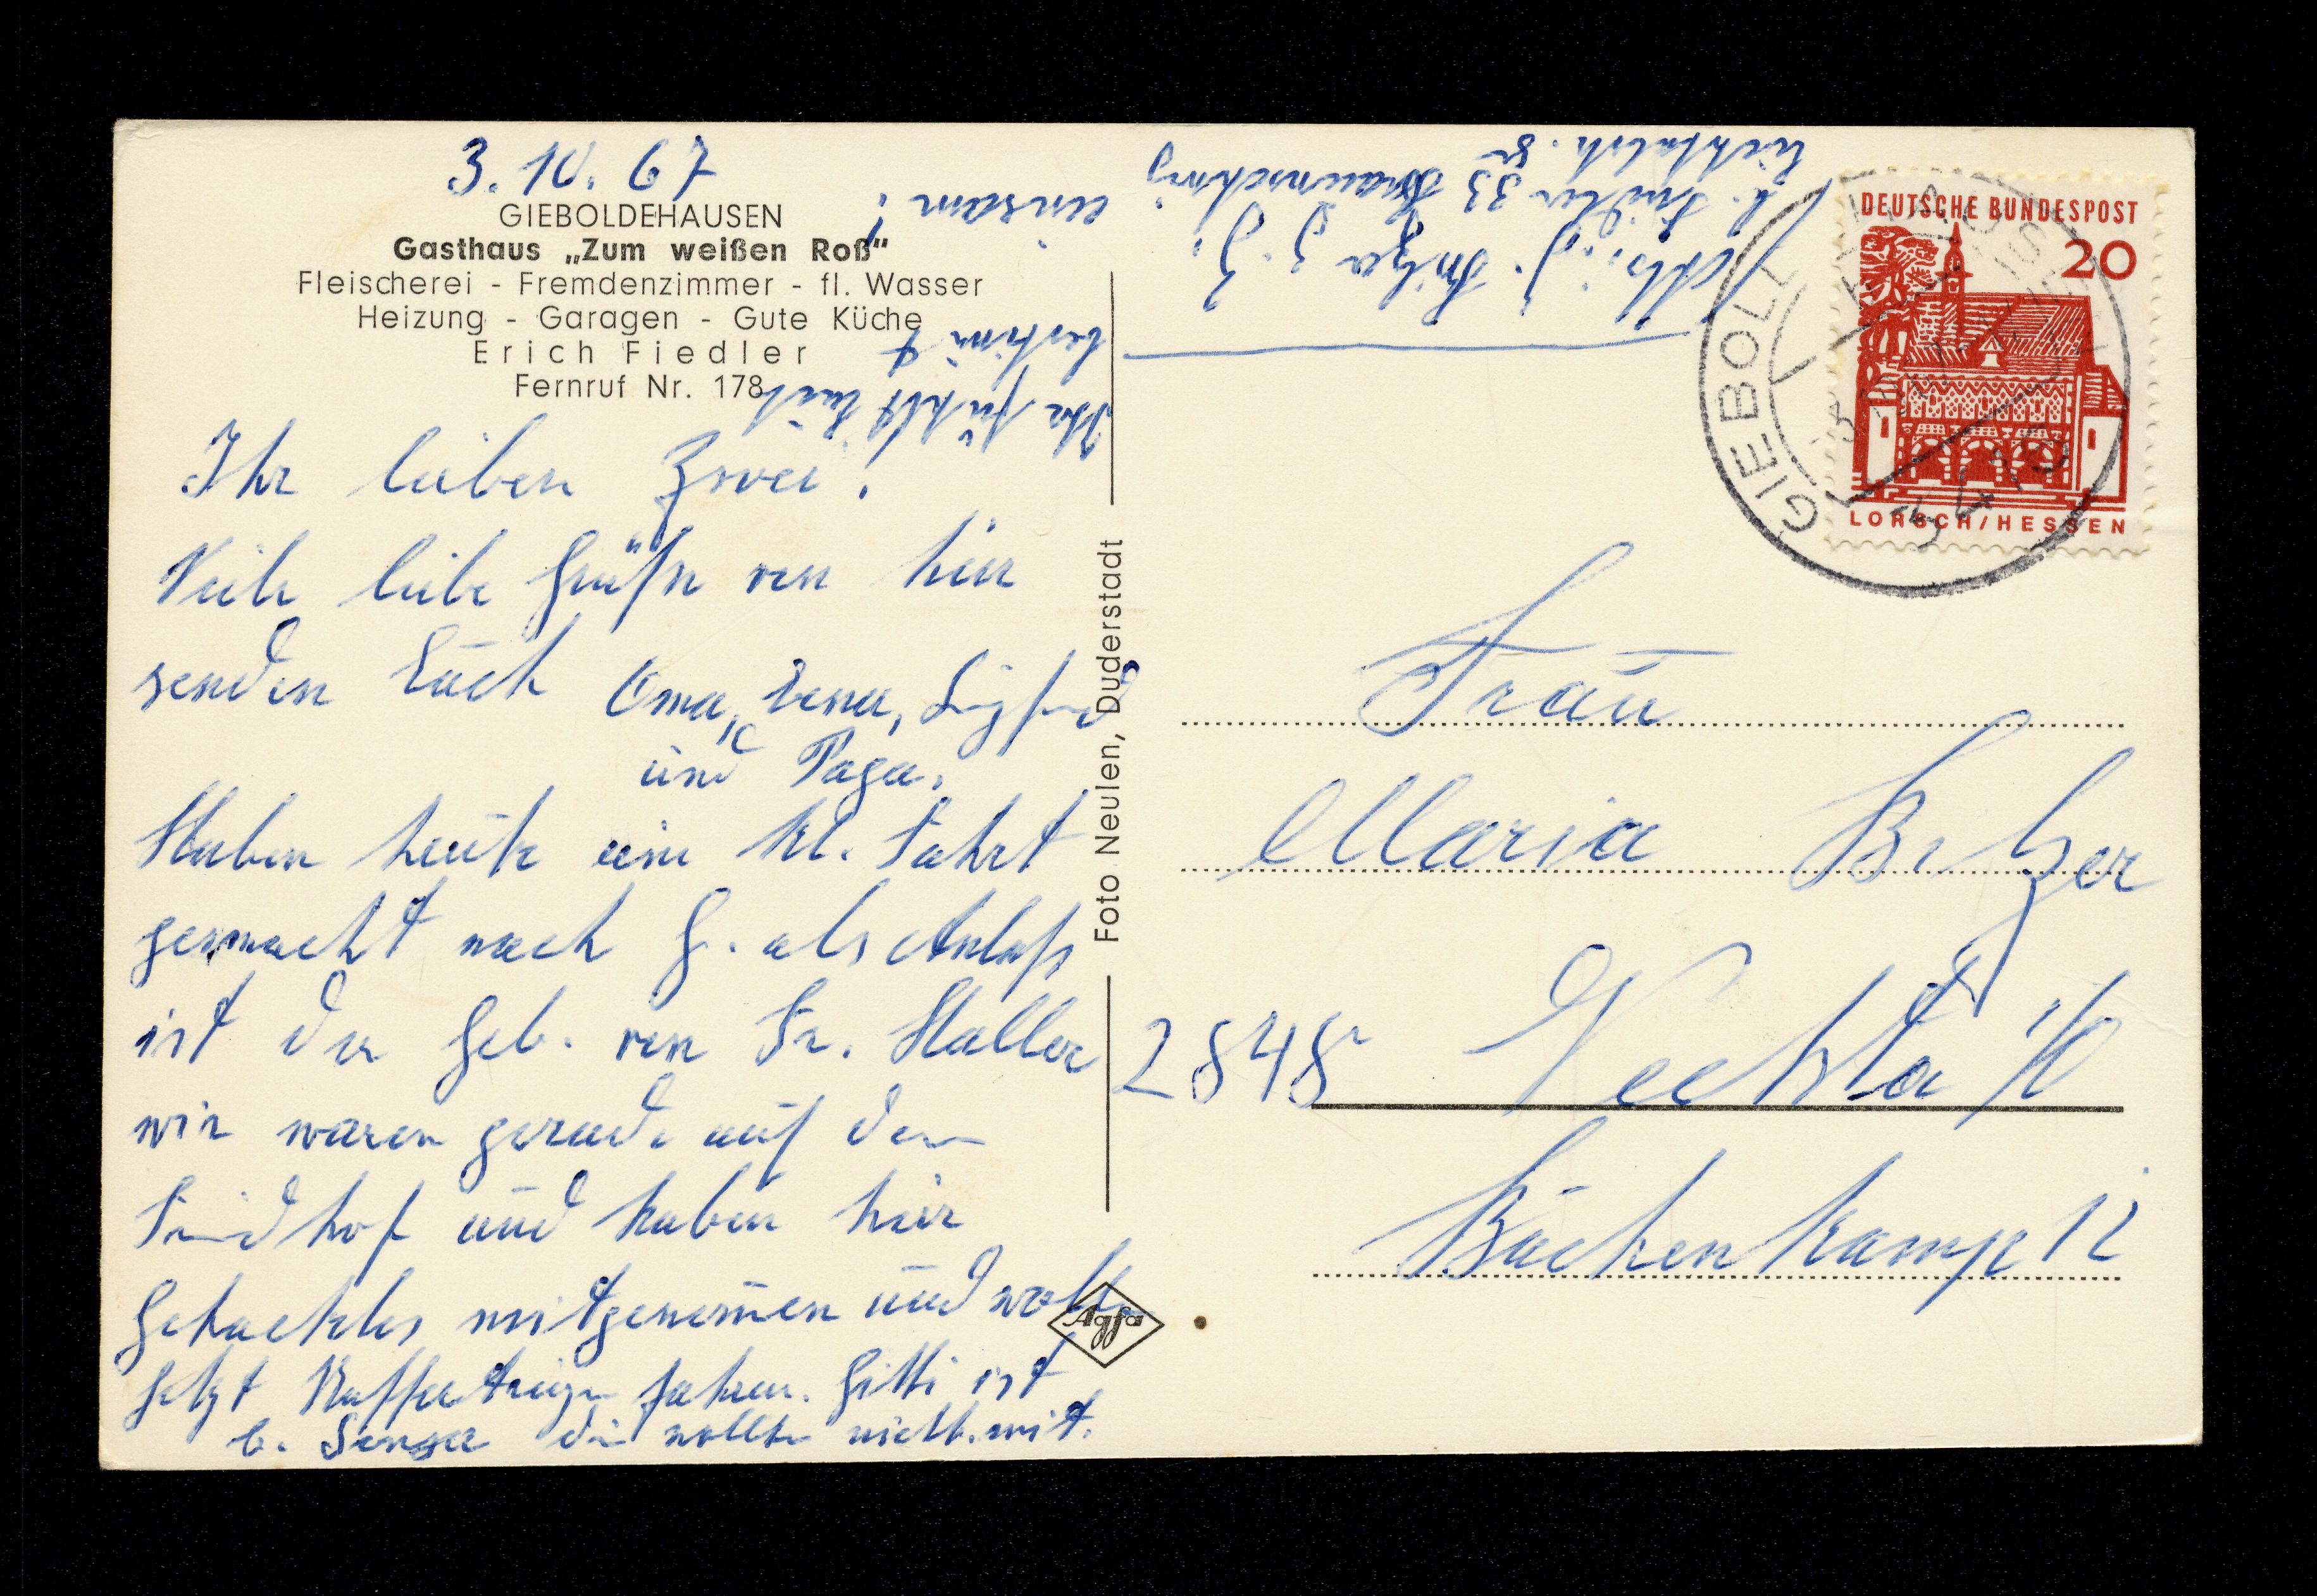 3.10.67
GIEBOLDEHAUSEN
Gasthaus „Zum weißen Roß"
Fleischerei - Fremdenzimmer - fl. Wasser
Heizung - Garagen - Gute Küche
Erich Fiedler
Fernruf Nr. 178
Ihr lieben Zwei!
Viele liebe Grüße von hier
senden Euch Oma,
und Papa.
Haben heute eine kl. Fahrt
gemacht nach G. als Anlaß
ist der Geb. von Fr. Haller
wir waren gerade auf dem
Friedhof und haben hier
Gehacktes mitgenommen und
jetzt Kaffee fahren. Gitti ist
b. die wollte nicht mit.
Ihr fühlt Euch
bestimmt
einsam!
Foto Neulen, Duderstadt
Agfa
Abs.: J. z. Z.
b. Fiedler 33 Braunschweig
DEUTSCHE BUNDESPOST
20
LORSCH/HESSEN
GIEBOLDEHAUSEN
Frau
Maria
2848 Vechta i/O
Bückenkamp 12